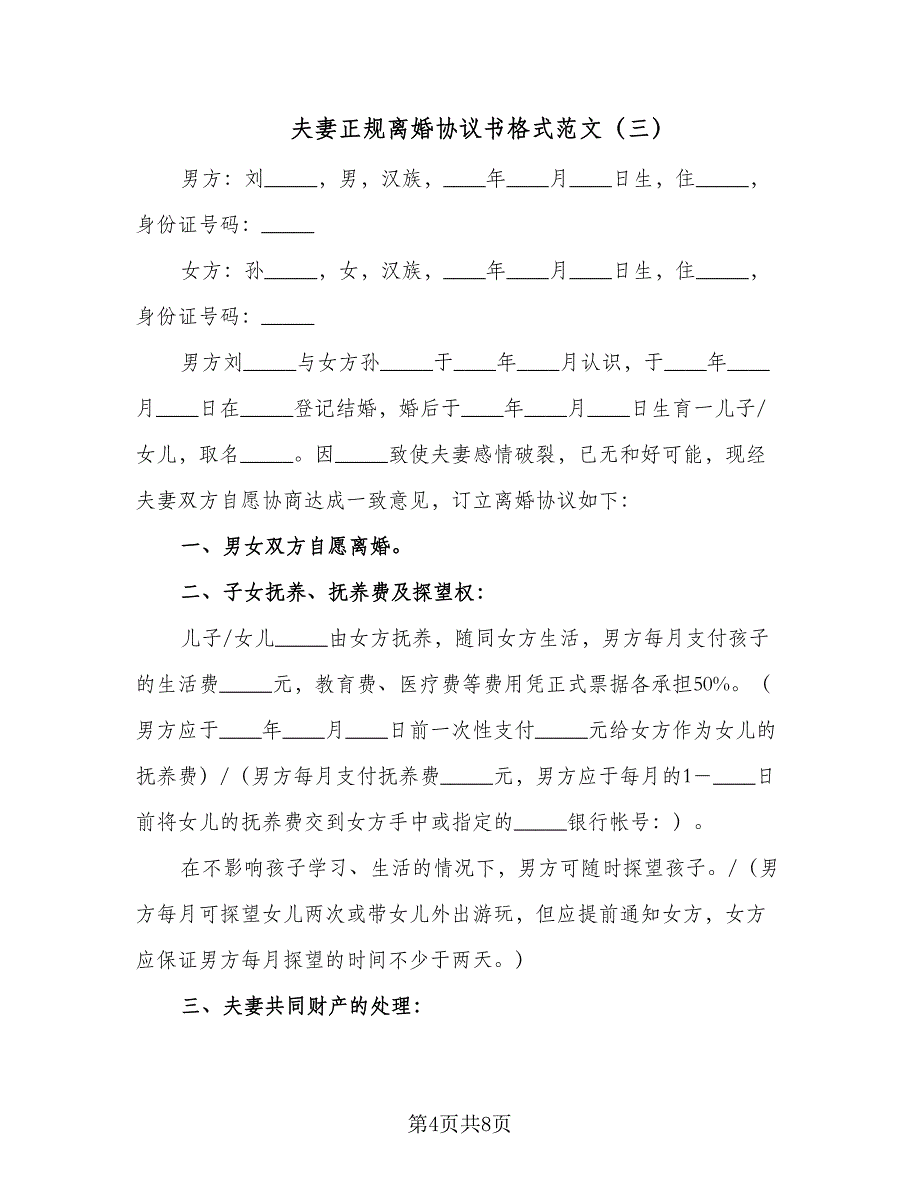 夫妻正规离婚协议书格式范文（三）
男方：刘_____，男，汉族，____年____月____日生，住_____，
身份证号码：_____
女方：孙_____，女，汉族，____年____月____日生，住_____，
身份证号码：_____
男方刘_____与女方孙_____于____年____月认识，于____年____
月____日在_____登记结婚，婚后于____年____月____日生育一儿子/
女儿，取名_____。因_____致使夫妻感情破裂，已无和好可能，现经
夫妻双方自愿协商达成一致意见，订立离婚协议如下：
一、男女双方自愿离婚。
二、子女抚养、抚养费及探望权：
儿子/女儿_____由女方抚养，随同女方生活，男方每月支付孩子
的生活费_____元，教育费、医疗费等费用凭正式票据各承担50%。（
男方应于____年____月____日前一次性支付_____元给女方作为女儿的
抚养费）/（男方每月支付抚养费_____元，男方应于每月的1－____日
前将女儿的抚养费交到女方手中或指定的_____银行帐号：）。
在不影响孩子学习、生活的情况下，男方可随时探望孩子。/（男
方每月可探望女儿两次或带女儿外出游玩，但应提前通知女方，女方
应保证男方每月探望的时间不少于两天。）
三、夫妻共同财产的处理：
第4页共8页